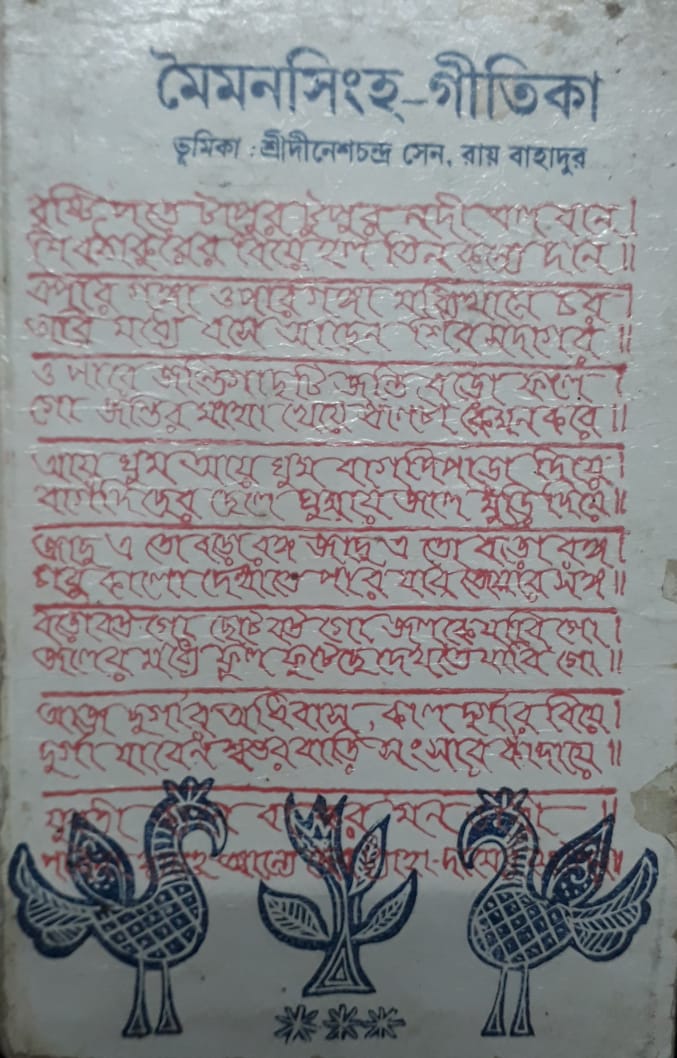 মৈমনসিংহ-গীতিকা
ভূমিকা : শ্রীদীনেশচন্দ্র সেন, রায় বাহাদুর
বৃষ্টি পড়ে টাপুর টুপুর নদী এল বান।
শিবঠাকুরের বিয়ে হল তিন কন্যে দান॥
এপার গঙ্গা ওপার গঙ্গা মধ্যিখানে চর
তারি মধ্যে বসে আছেন শিব সদাগর॥
ও পারে জন্তিগাছটি জন্তি বড়ো ফলে।
গো জন্তির মাথা খেয়ে প্রাণটা কেমন করে॥
আয় ঘুম আয় ঘুম বাগদিপাড়া দিয়ে।
বাগদিদের ছেলে ঘুমায় জাল মুড়ি দিয়ে॥
জাদু এ তো বড়ো রঙ্গ জাদু এ তো বড়ো রঙ্গ।
কালো দেখাতে পার যাব তোমার সঙ্গ॥
বড়োবউ গো ছোটবউ গো জলকে যাবি গো।
জলের মধ্যে ফুল ফুটেছে দেখতে যাবি গো॥
আজ দুর্গার অধিবাস, কাল দুর্গার বিয়ে।
দুর্গা যাবেন শ্বশুরবাড়ি সংসার কাঁদায়ে॥